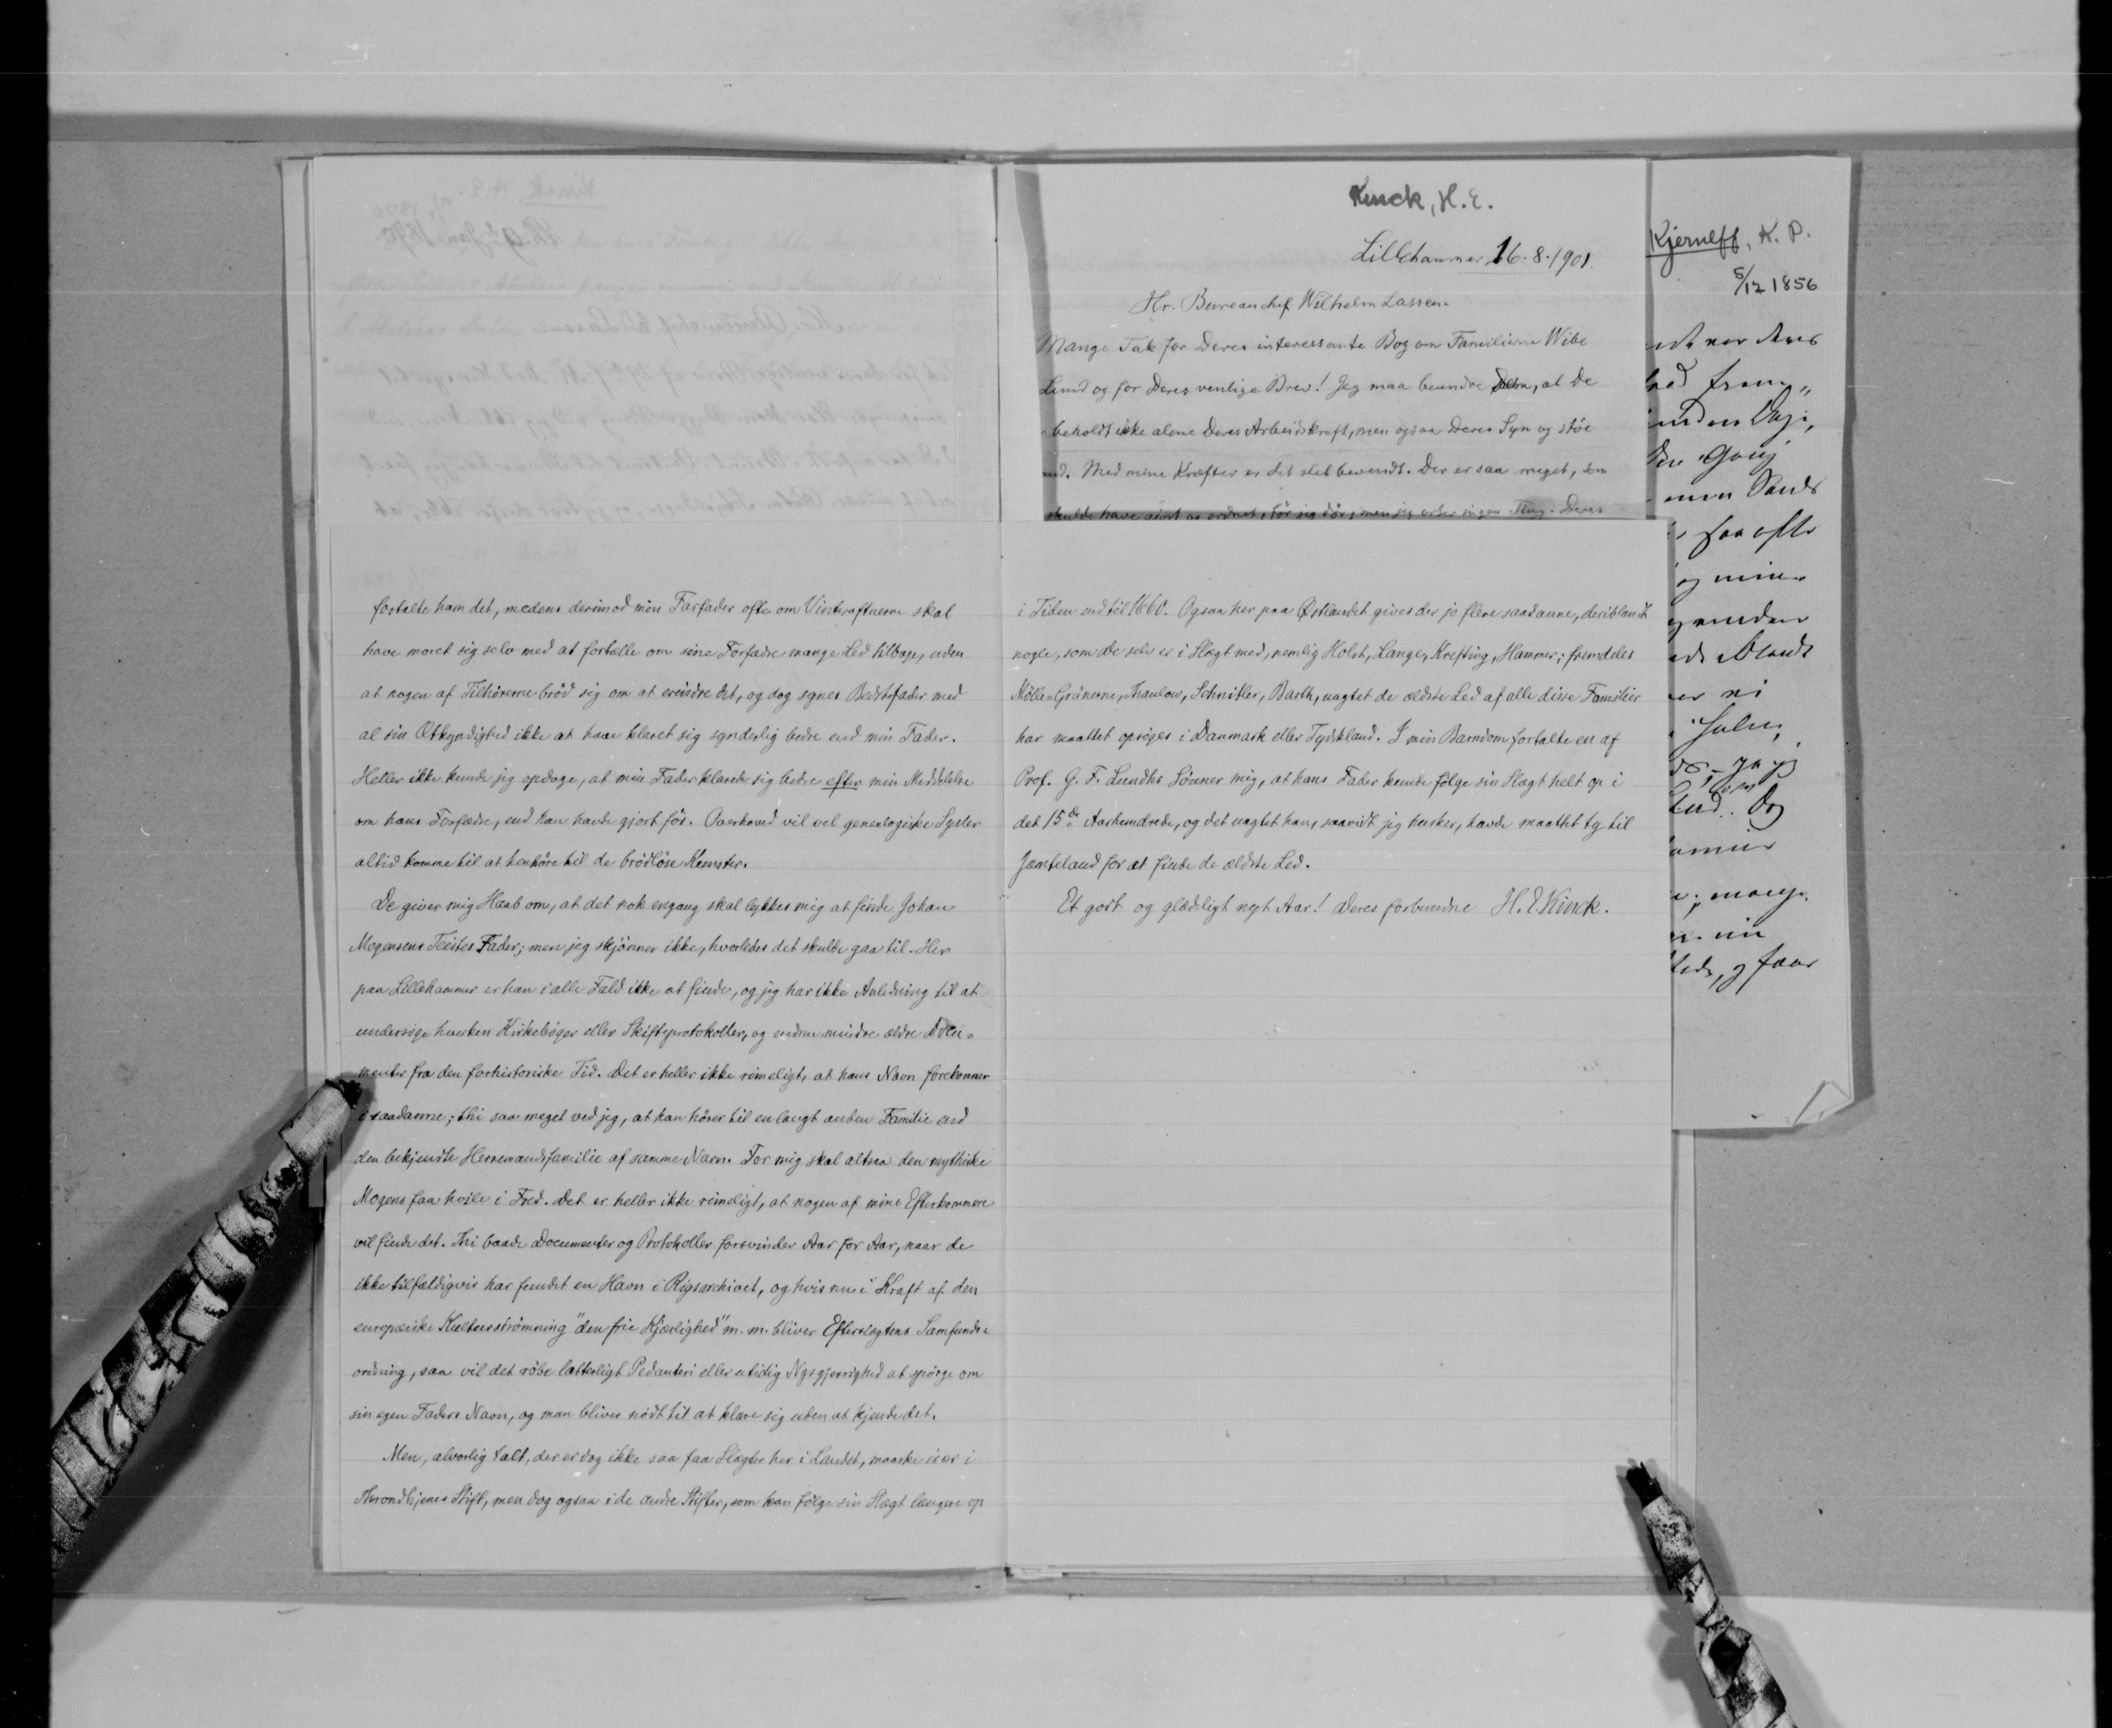 fortalte ham det, medens derimod min Farfader ofte om Vinteraftnerne skal
have moret sig selv med at fortelle om sine Forfædre mange Led tilbage, uden
at nogen af Tilhørerne brød sig om at erindre det, og dog synes Bedstefader med
al sin Ætkyndighed ikke at have klaret sig synderlig bedre end min Fader.
Heller ikke kunde jeg opdage, at min Fader klarede sig bedre efter min Meddelelse
om hans Forfædre, end han havde gjort før. Overhoved vil vel genealogiske Sysler
altid komme til at henhøre til de brødløse Kunster.
De giver mig Haab om, at det nok engang skal lykkes mig at finde Johan
Mogensens Teistes Fader; men jeg skjønner ikke, hvorledes det skulde gaa til. Her
paa Lillehammer er han i alle Fald ikke at finde, og jeg har ikke Anledning til at
undersøge hverken Kirkebøger eller Skifteprotokoller, og endnu mindre ældre Docu-
menter fra den forhistoriske Tid. Det er heller ikke rimeligt, at hans Navn forekommer
i saadanne; thi saa meget ved jeg, at han hører til en langt anden Familie end
den bekjendte Herremandsfamilie af samme Navn. For mig skal altsaa den mythiske
Mogens faa hvile i Fred. Det er heller ikke rimeligt, at nogen af mine Efterkommere
vil finde det. Thi baade Documenter og Protokoller forsvinder Aar for Aar, naar de
ikke tilfældigvis har fundet en Havn i Rigsarchivet, og hvis nu i Kraft af den
europæiske Kulturstrømning "den frie Kjærlighed" m. m. bliver Efterslægtens Samfunds-
ordning, saa vil det røbe latterligt Pedanteri eller utidig Nysgjerrighed at spørge om
sin egen Faders Navn, og man bliver nødt til at klare sig uden at kjende det.
Men, alvorlig talt, der er dog ikke saa faa Slægter her i Landet, maaske især i
Throndhjems Stift, men dog ogsaa i de andre Stifter, som kan følge sin Slægt længere op
Kinck, H. E.
Lillehammer 16. 8. 1901.
Hr. Bureauchef Wilhelm Lassen.
Mange Tak for Deres interessante Bog om Familierne Wibe
Lund og for Deres venlige Brev! Jeg maa beundre Dem, at De
beholdt ikke alene Deres Arbeidskraft, men ogsaa Deres Syn og støe
Med mine Kræfter er det slet bevendt. Der er saa meget, som
skulde have gjort og ordnet, før jeg dør, men jeg orker ingen Ting. Deres
i Tiden end til 1660. Ogsaa her paa Østlandet gives der jo flere saadanne, deriblandt
nogle, som De selv er i Slægt med, nemlig Holst, Lange, Krefting, Hammer; fremdeles
Mølle-Grünerne, Thaulow, Schnitler, Barth, uagtet de ældste Led af alle disse Familier
har maattet opsøges i Danmark eller Tydskland. I min Barndom fortalte en af
Prof. G. F. Lundhs Sønner mig, at hans Fader kunde følge sin Slægt helt op i
det 15de Aarhundrede, og det uagtet han, saavidt jeg husker, havde maattet ty til
Jæmteland for at finde de ældste Led.
Et godt og glædeligt nyt Aar! Deres forbundne H. E. Kinck.
Kjerulff, K. P.
5/12 1856